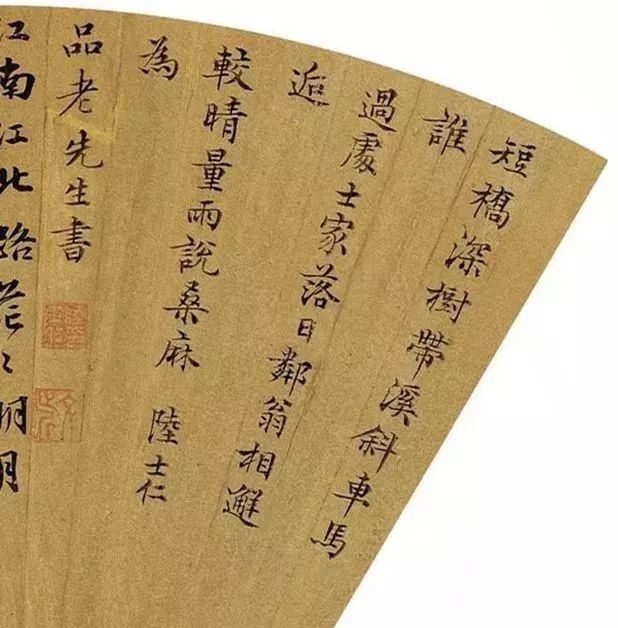 短橋深樹帶溪斜車馬
誰
過處士家落日鄰翁相邂
逅
較晴量雨說桑麻 陸士仁
為
品老先生書
江南江北路茫〻明月